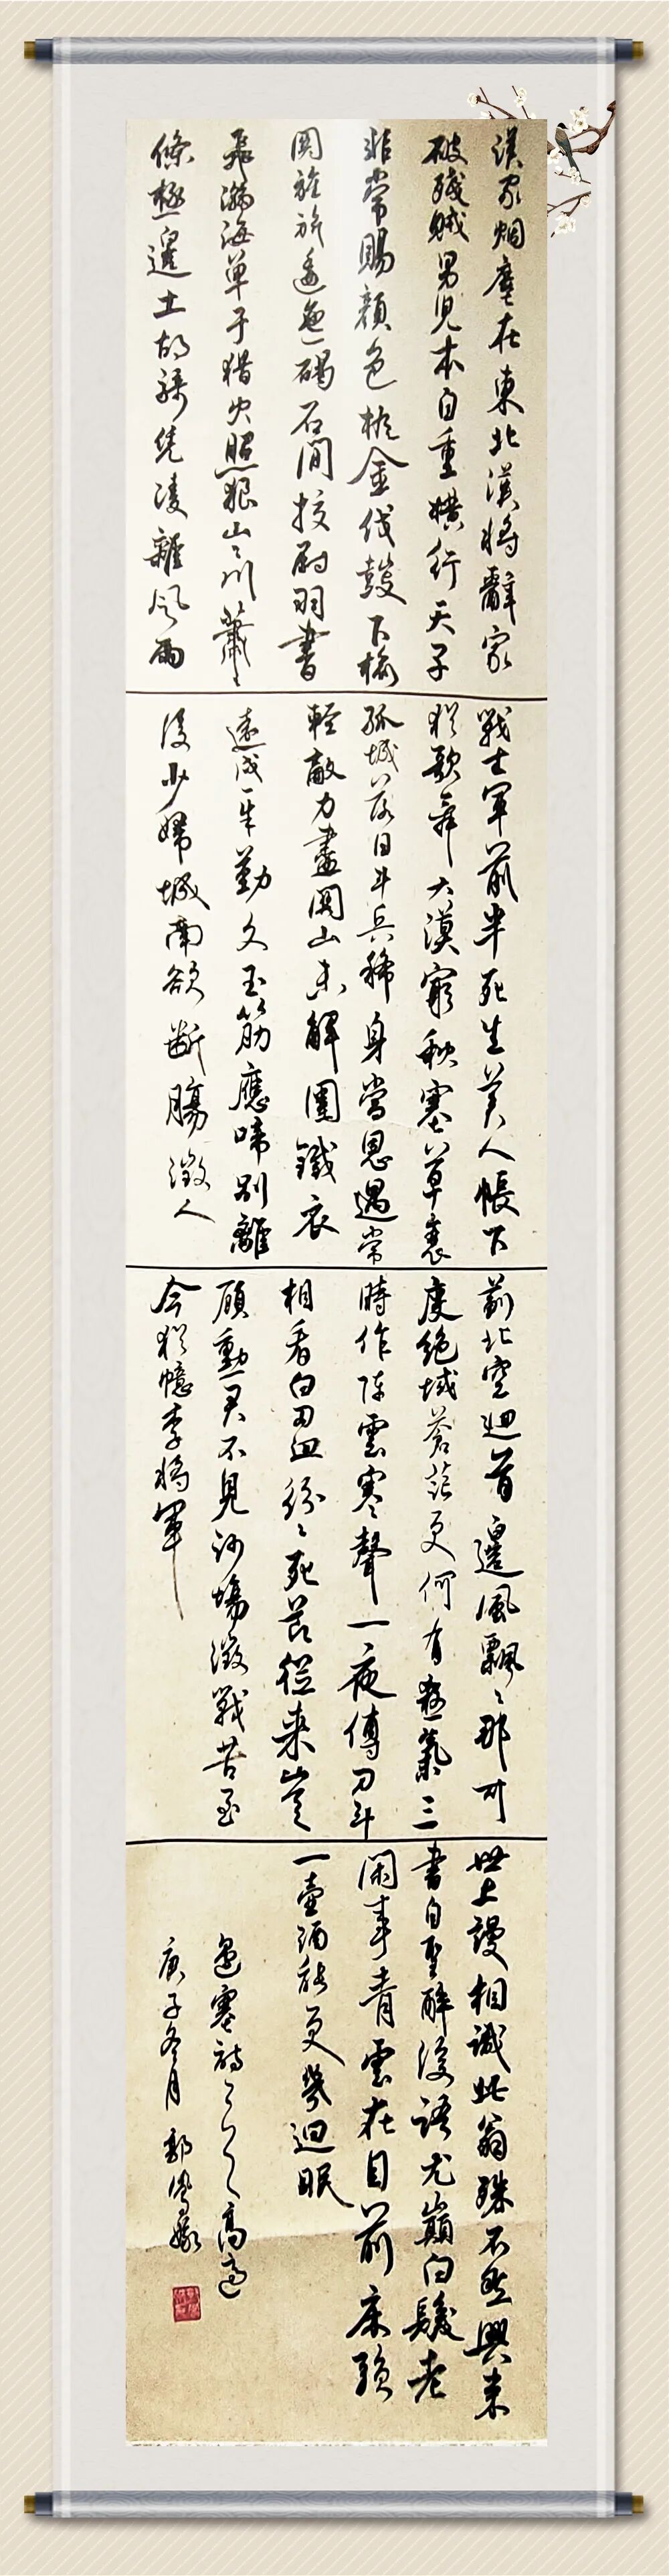 漢家烟塵在東北漢將辭家
破殘賊男兒本自重橫行天子
非常賜顏色摐金伐鼓下榆
關旌旆逶迤碣石間校尉羽書
飛瀚海單于猎火照狼山山川蕭
條極邊土胡騎凭凌雜風雨
戰士軍前半死生美人帳下
猶歌舞大漠窮秋塞草衰
孤城落日斗兵稀身當恩遇常
輕敵力盡關山未解圍鐵衣
遠戍辛勤久玉筋應啼別離
後少婦城南欲斷腸徵人
薊北空迴首邊風飄飄那可
度絕域蒼茫更何有殺氣三
時作陣雲寒聲一夜傳刀斗
相看白刃血紛紛死節從來豈
顧勳君不見沙場徵戰苦至
今猶憶李將軍
世上謾相識此翁殊不然興來
書自聖醉後語尤巔白髮老
閑事青雲在目前床頭
一壺酒能更幾迴眠
邊塞詩 高適
庚子冬月 郭